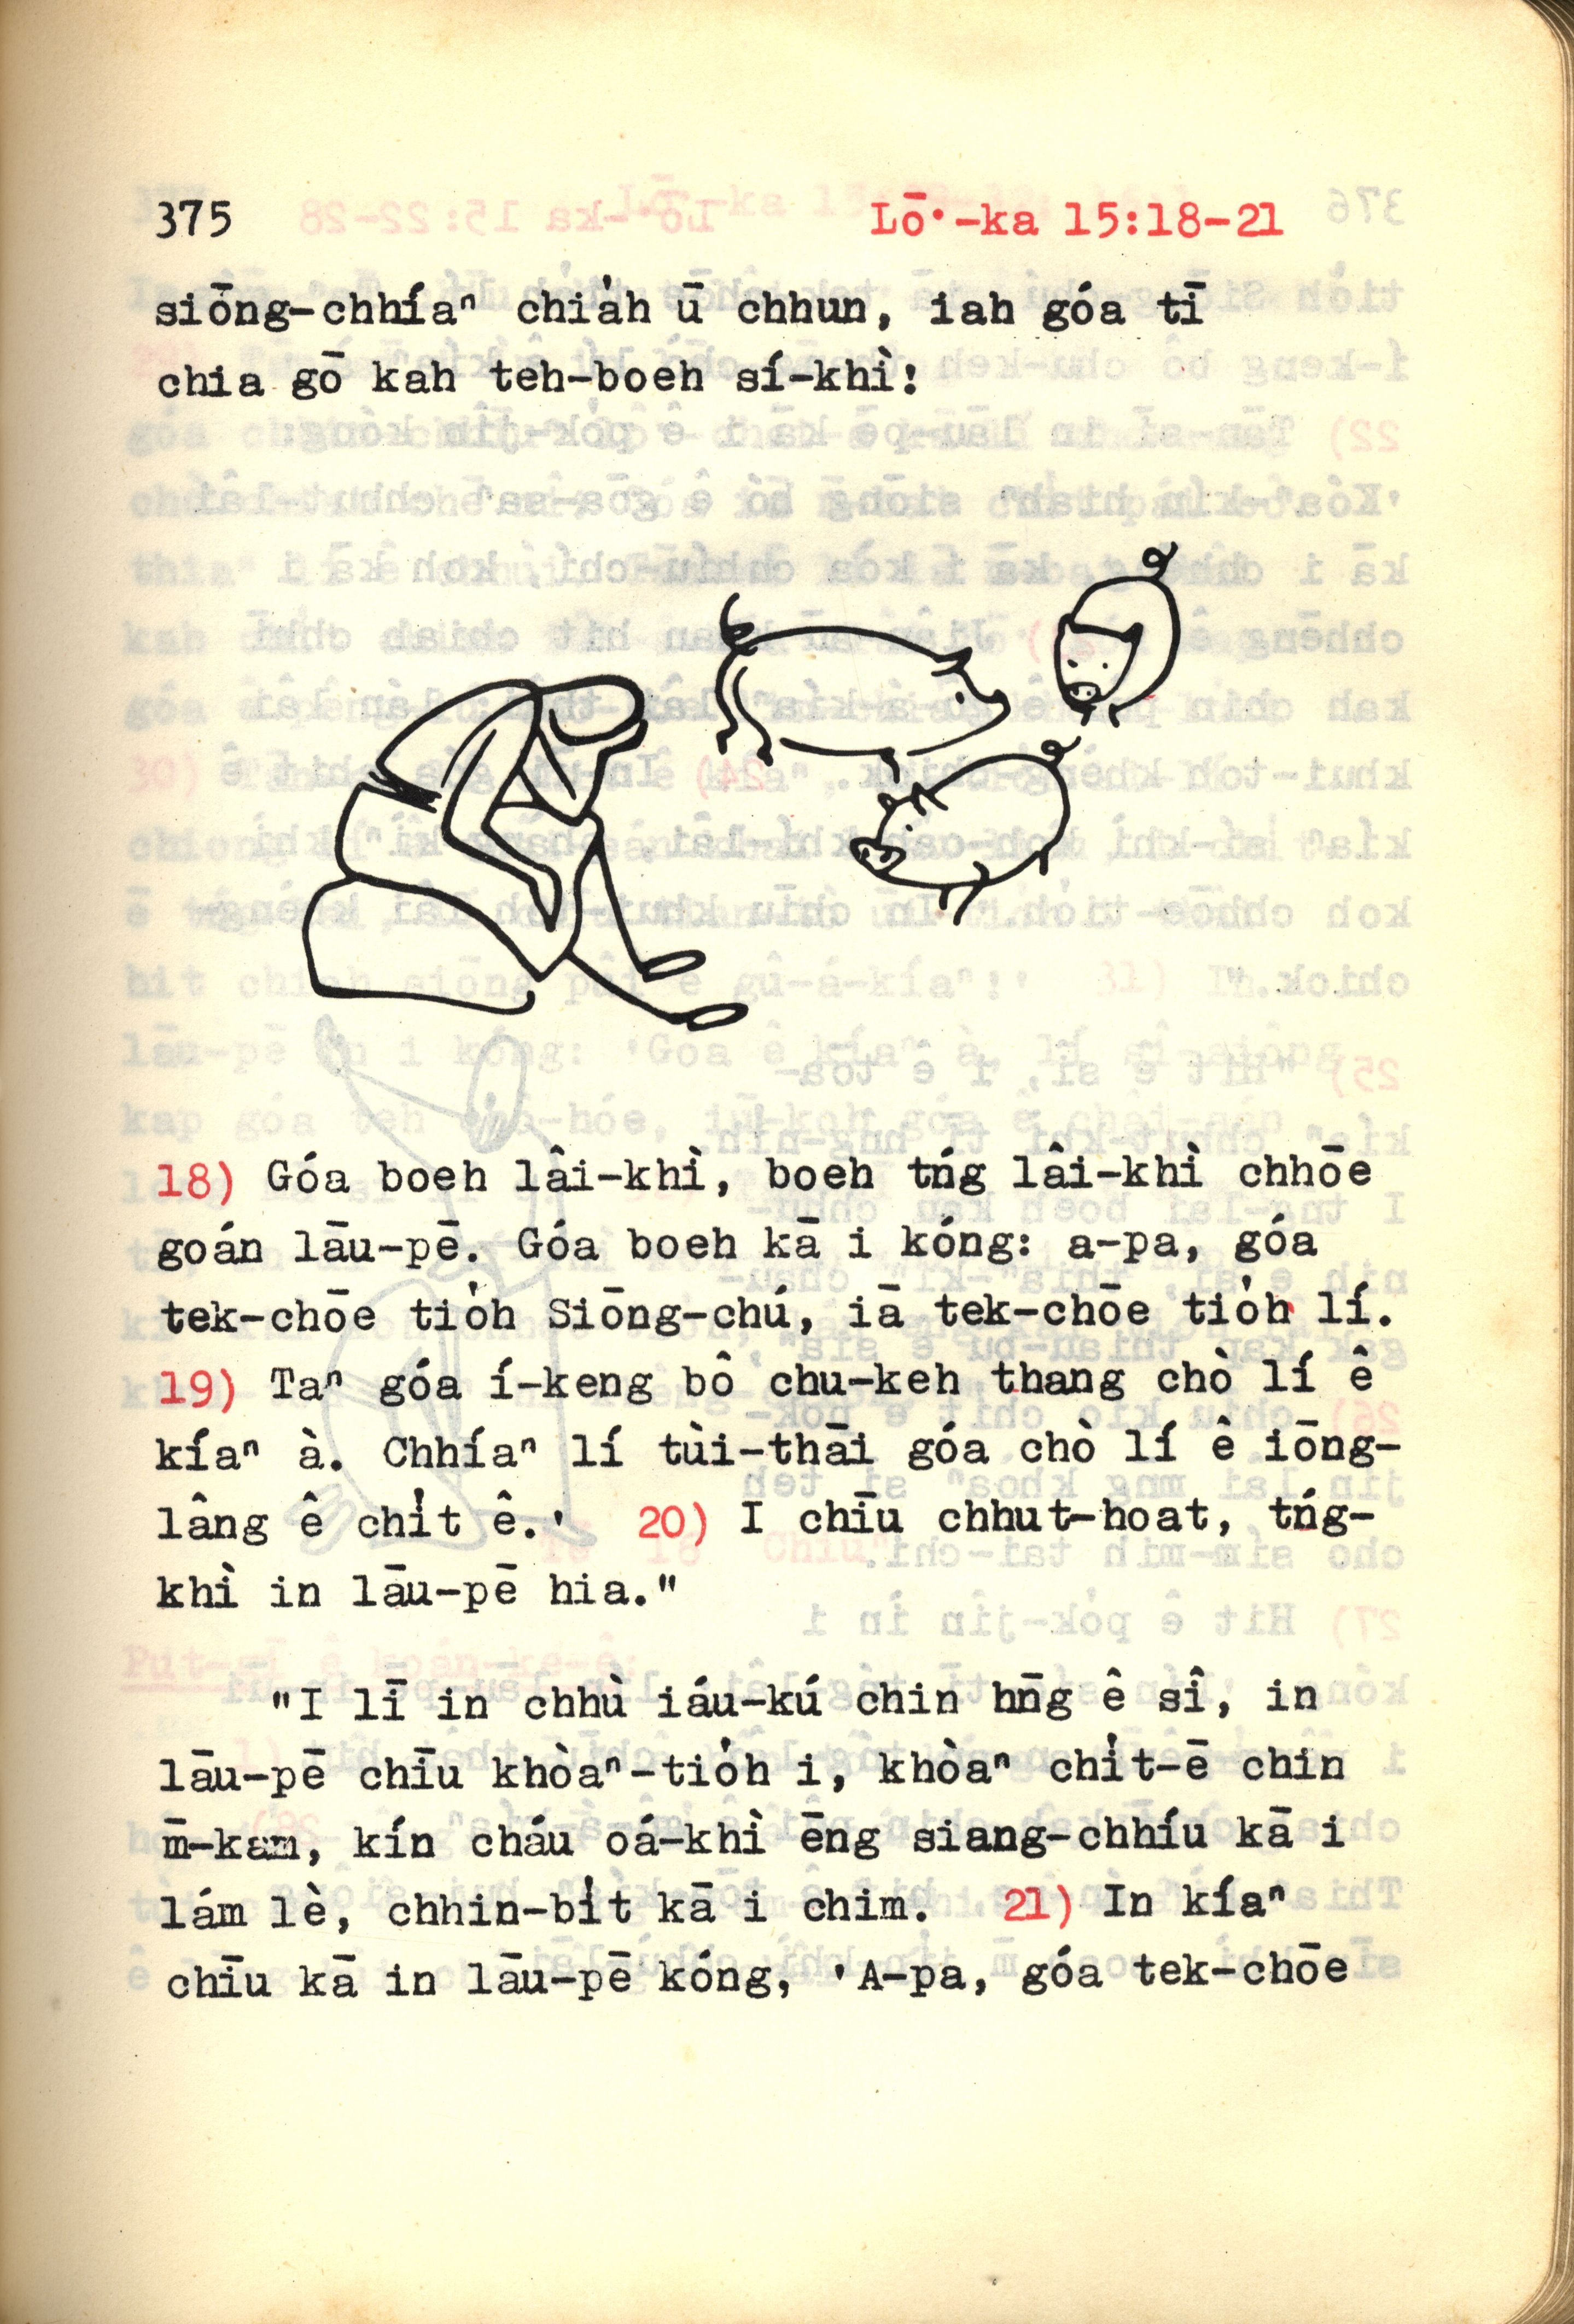 375 Lō͘-ka 15:18-21
siōng-chhíaⁿ chia̍h ū chhun, iah góa tī
chia gō kah teh-boeh sí-khì!
18) Góa boeh lâi-khì, boeh tńg lâi-khì chhōe
goán lāu-pē. Góa boeh kā i kóng: a-pa, góa
tek-chōe tio̍h Siōng-chú, iā tek-chōe tio̍h lí.
19) Taⁿ góa í-keng bô chu-keh thang chò lí ê
kíaⁿ à. Chhíaⁿ lí tùi-thāi góa chò lí ê iōng-
lâng ê chi̍t ê.' 20) I chīu chhut-hoat, tńg-
khì in lāu-pē hia."
"I lī in chhù iáu-kú chin hn̄g ê sî, in
lāu-pē chīu khòaⁿ-tio̍h i, khòaⁿ chi̍t-ē chin
m̄-kam, kín cháu oá-khì ēng siang-chhíu kā i
lám lè, chhin-bi̍t kā i chim. 21) In kíaⁿ
chīu kā in lāu-pē kóng, 'A-pa, góa tek-chōe